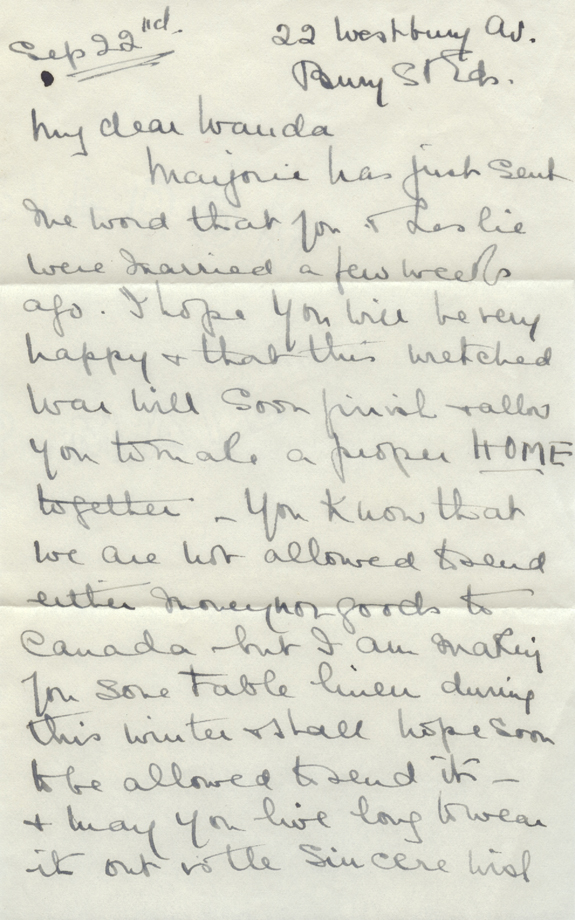 Sep 22nd.
22 Westbury Av.
Bury St Eds.
My dear Wanda
Marjorie has just sent
me word that you & Leslie
were married a few weeks
ago. I hope you will be very
happy & that this wretched
war will soon finish & allow
you to make a proper HOME
together - You know that
we are not allowed to send
either money nor goods to
Canada - but I am making
you some table linen during
this winter & shall hope soon
to be allowed to send it -
& may you live long to wear
it out is the sincere wish